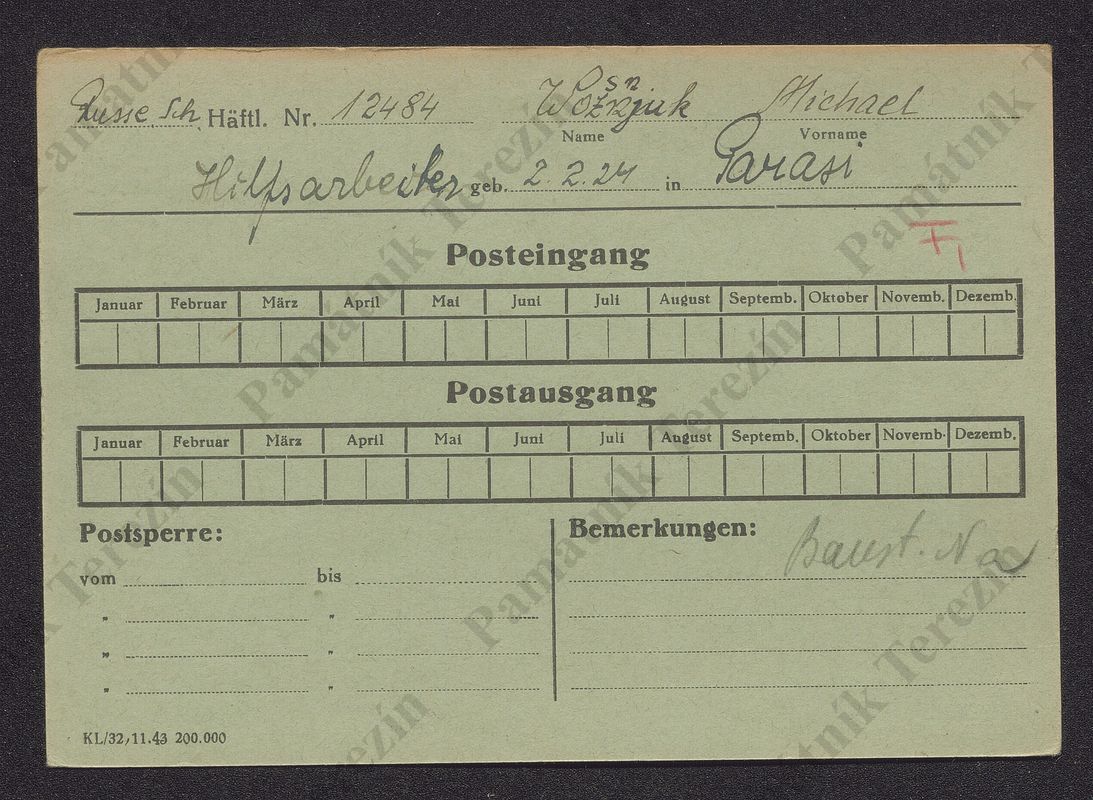 Russe Sch. Häftl. Nr. 12484 Wožnjuk Michael
sn
Name Vorname
Hilfsarbeiter geb. 2.2.24 in Parasi
Posteingang
Januar Februar März April Mai Juni Juli August Septemb. Oktober Novemb. Dezemb.
Postausgang
Januar Februar März April Mai Juni Juli August Septemb. Oktober Novemb. Dezemb.
Postsperre: Bemerkungen:
Baust. Na
vom bis
" "
" "
" "
KL/32, 11.43 200.000
Památník Terezín